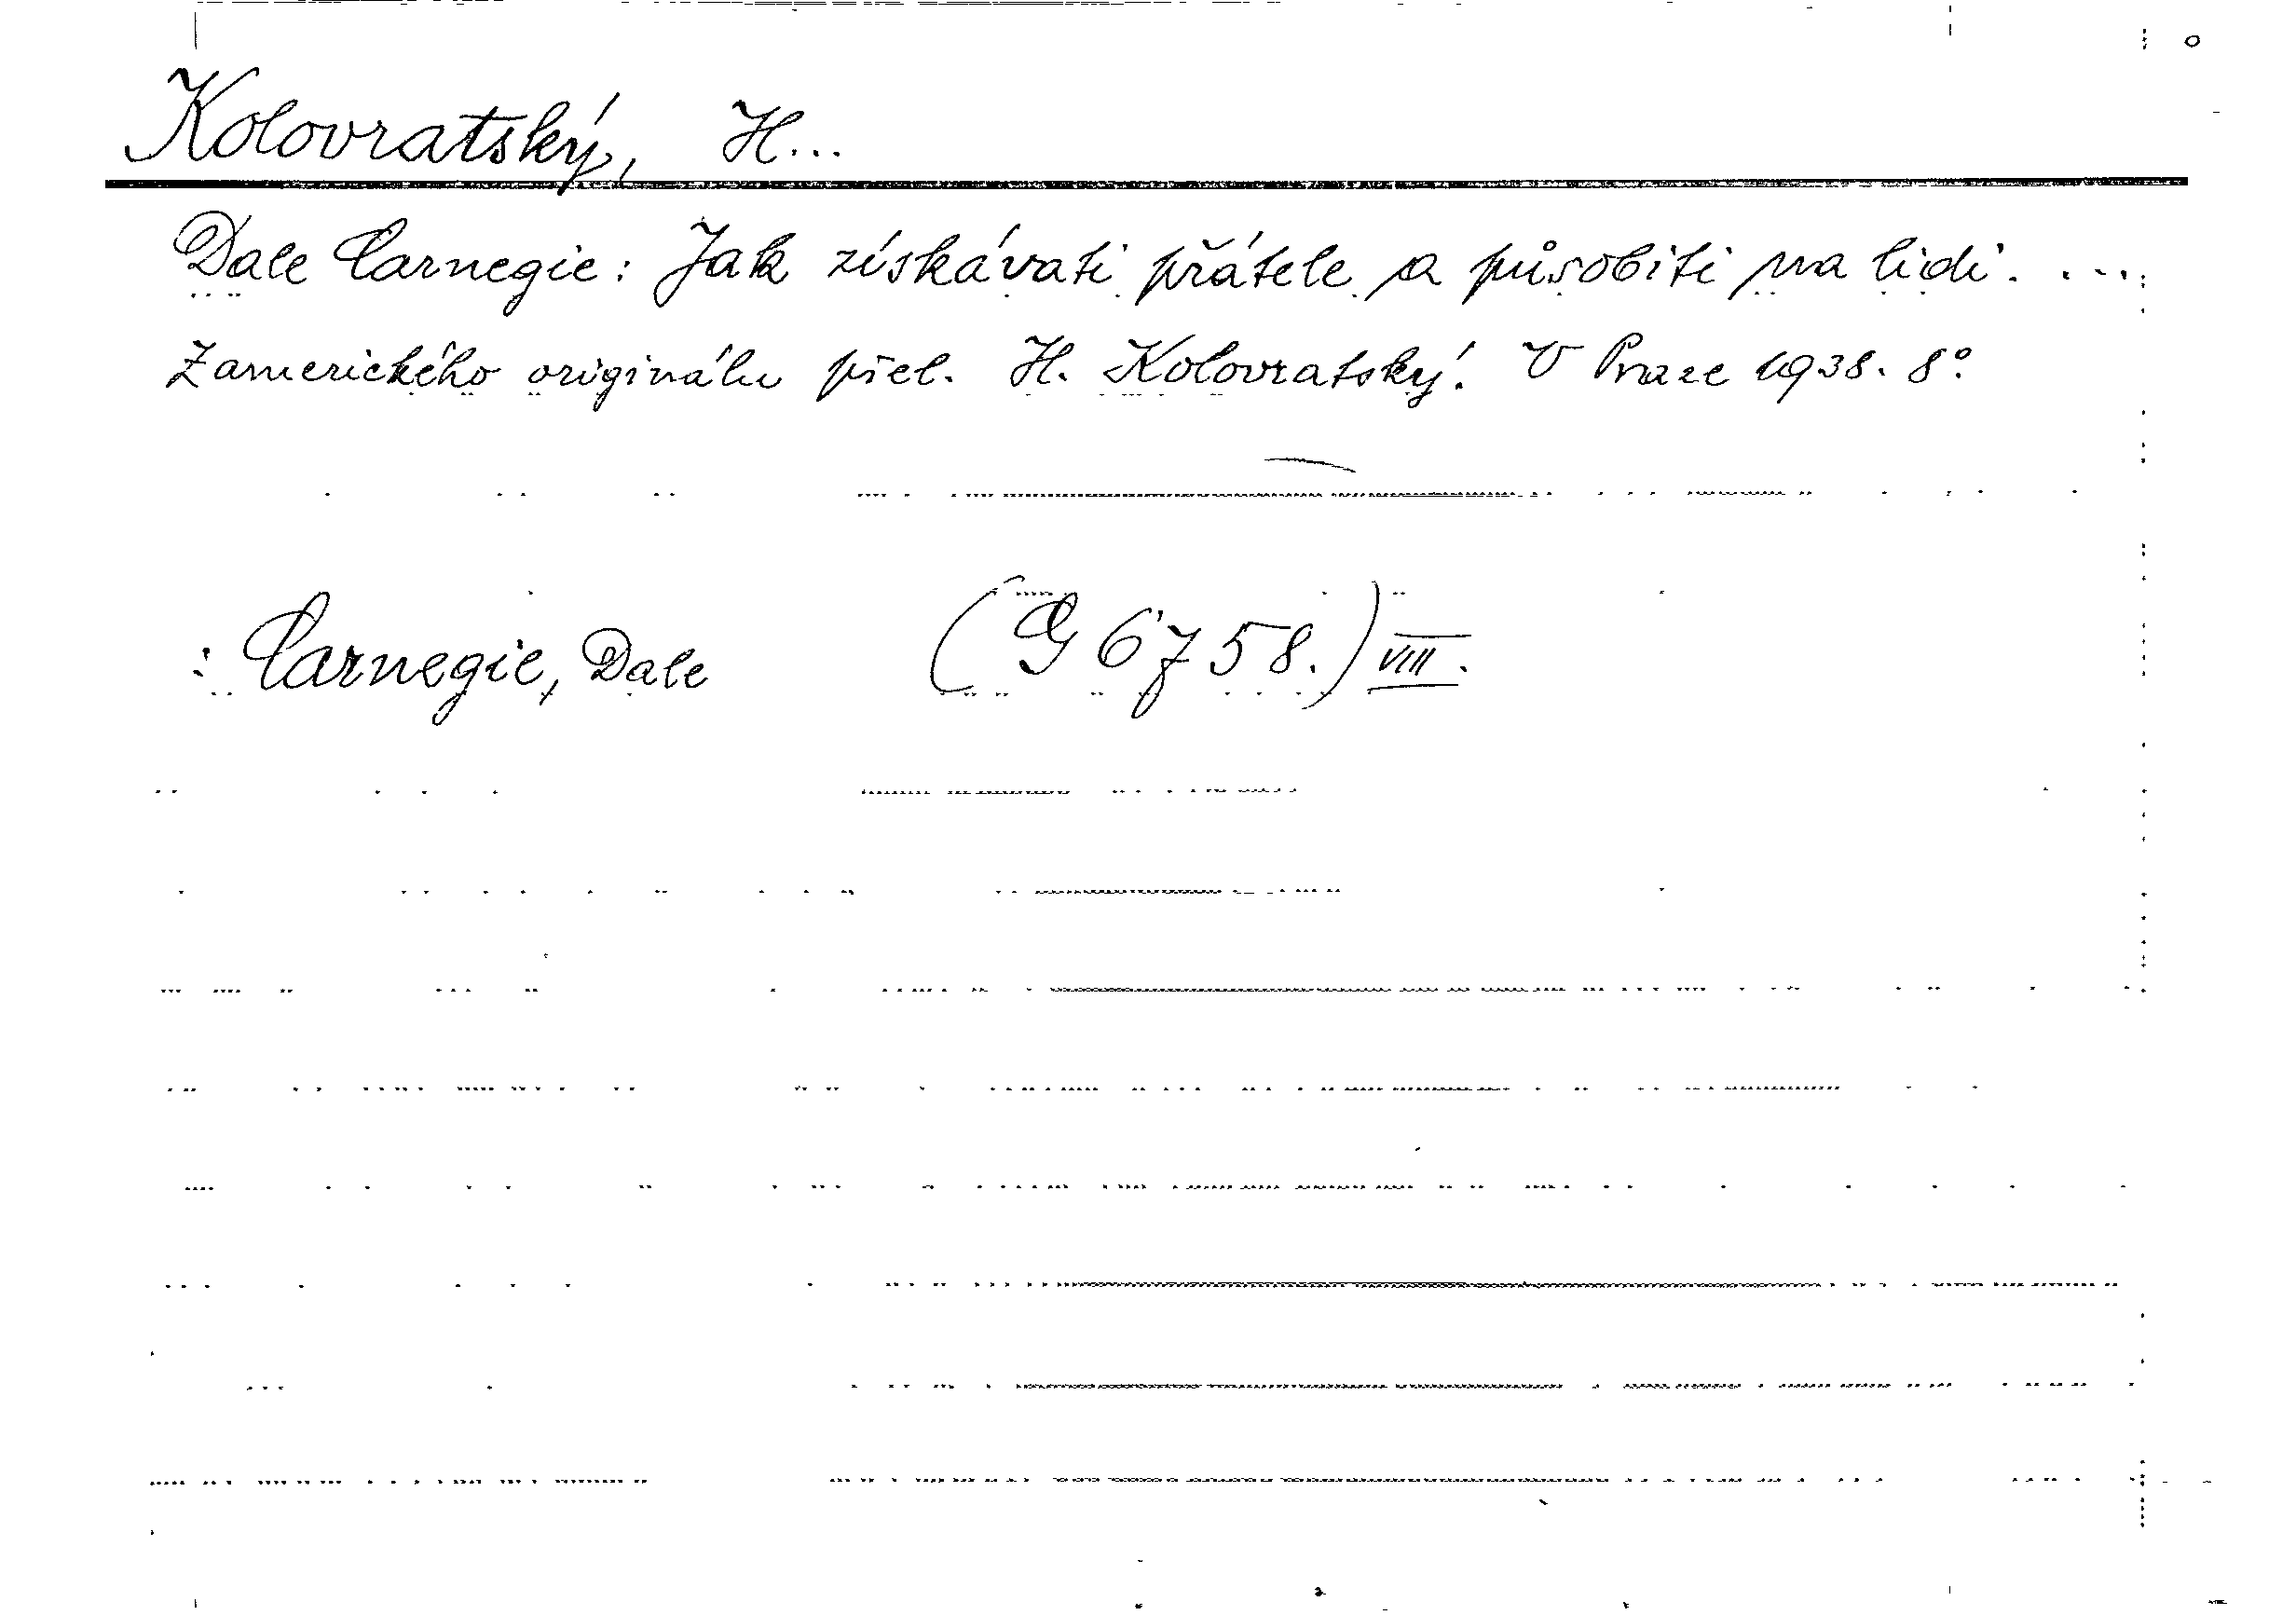 Kolovratský, H...
Dale Carnegie: Jak získávati přátele a působiti na lidi. ....
Z amerického originálu přel. H. Kolovratský. V Praze 1938. 8°
: Carnegie, Dale (G 6758.) VIII.